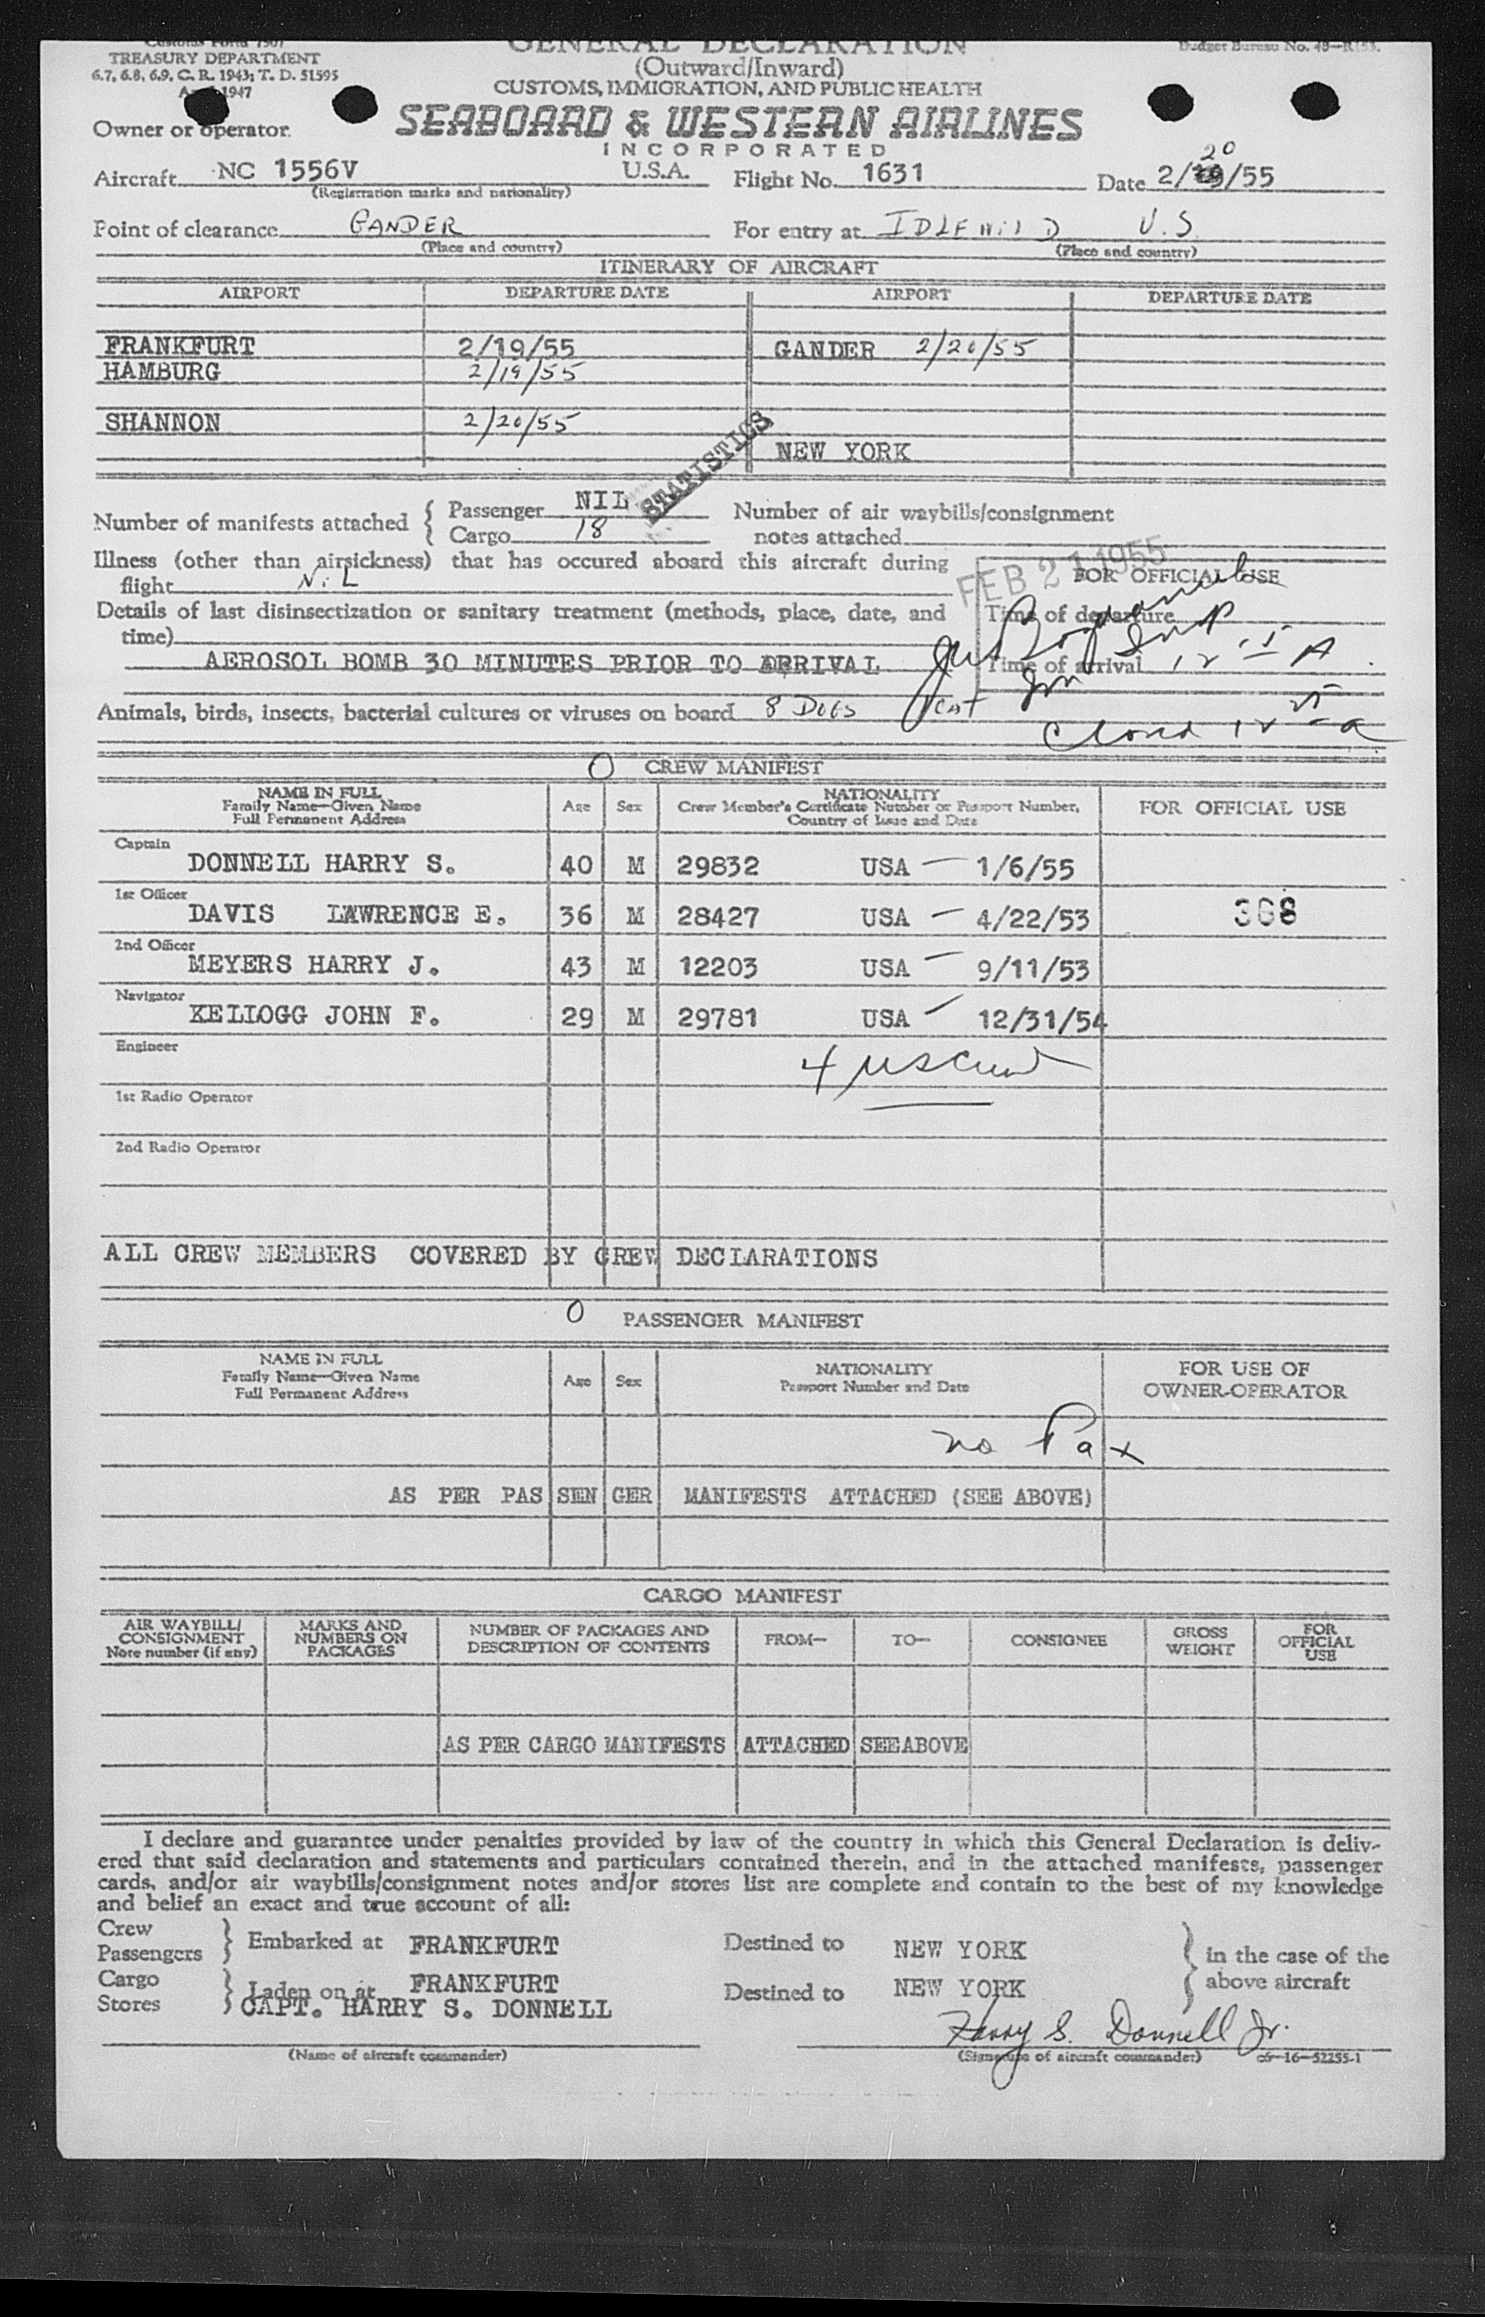 Customs Form 7507
TREASURY DEPARTMENT
6.7, 6.8, 6.9, C. R. 1943; T. D. 51595
April 1947
GENERAL DECLARATION
(Outward/Inward)
CUSTOMS, IMMIGRATION, AND PUBLIC HEALTH
Budget Bureau No. 48-R153.
Owner or operator
SEABOARD & WESTERN AIRLINES
INCORPORATED
Aircraft NC 1556V U.S.A. Flight No. 1631 Date 2/20/55
(Registration marks and nationality)
Point of clearance GANDER For entry at IDLEWILD U.S.
(Place and country) (Place and country)
ITINERARY OF AIRCRAFT
AIRPORT DEPARTURE DATE AIRPORT DEPARTURE DATE
FRANKFURT 2/19/55 GANDER 2/20/55
HAMBURG 2/19/55
SHANNON 2/20/55
NEW YORK
STATISTICS
Number of manifests attached { Passenger NIL Number of air waybills/consignment
Cargo 18 notes attached
Illness (other than airsickness) that has occured aboard this aircraft during
flight NIL
FEB 21 1955
FOR OFFICIAL USE
Details of last disinsectization or sanitary treatment (methods, place, date, and
time)
Time of departure
AEROSOL BOMB 30 MINUTES PRIOR TO ARRIVAL
Time of arrival 12 15 A
Animals, birds, insects, bacterial cultures or viruses on board 8 DOGS 1 CAT
Closed 12 25 a
O CREW MANIFEST
NAME IN FULL
Family Name—Given Name
Full Permanent Address
Age Sex
NATIONALITY
Crew Member's Certificate Number or Passport Number,
Country of Issue and Date
FOR OFFICIAL USE
Captain
DONNELL HARRY S. 40 M 29832 USA — 1/6/55
1st Officer
DAVIS LAWRENCE E. 36 M 28427 USA — 4/22/53 368
2nd Officer
MEYERS HARRY J. 43 M 12203 USA — 9/11/53
Navigator
KELLOGG JOHN F. 29 M 29781 USA — 12/31/54
Engineer
4 USCrew
1st Radio Operator
2nd Radio Operator
ALL CREW MEMBERS COVERED BY CREW DECLARATIONS
O PASSENGER MANIFEST
NAME IN FULL
Family Name—Given Name
Full Permanent Address
Age Sex
NATIONALITY
Passport Number and Date
FOR USE OF
OWNER-OPERATOR
no Pax
AS PER PASSENGER MANIFESTS ATTACHED (SEE ABOVE)
CARGO MANIFEST
AIR WAYBILL/
CONSIGNMENT
Note number (if any)
MARKS AND
NUMBERS ON
PACKAGES
NUMBER OF PACKAGES AND
DESCRIPTION OF CONTENTS
FROM— TO— CONSIGNEE
GROSS
WEIGHT
FOR
OFFICIAL
USE
AS PER CARGO MANIFESTS ATTACHED SEE ABOVE
I declare and guarantee under penalties provided by law of the country in which this General Declaration is deliv-
ered that said declaration and statements and particulars contained therein, and in the attached manifests, passenger
cards, and/or air waybills/consignment notes and/or stores list are complete and contain to the best of my knowledge
and belief an exact and true account of all:
Crew
Passengers } Embarked at FRANKFURT Destined to NEW YORK } in the case of the
Cargo
Stores } Laden on at FRANKFURT Destined to NEW YORK above aircraft
CAPT. HARRY S. DONNELL
Harry S. Donnell Jr.
(Name of aircraft commander) (Signature of aircraft commander) c6—16—52255-1